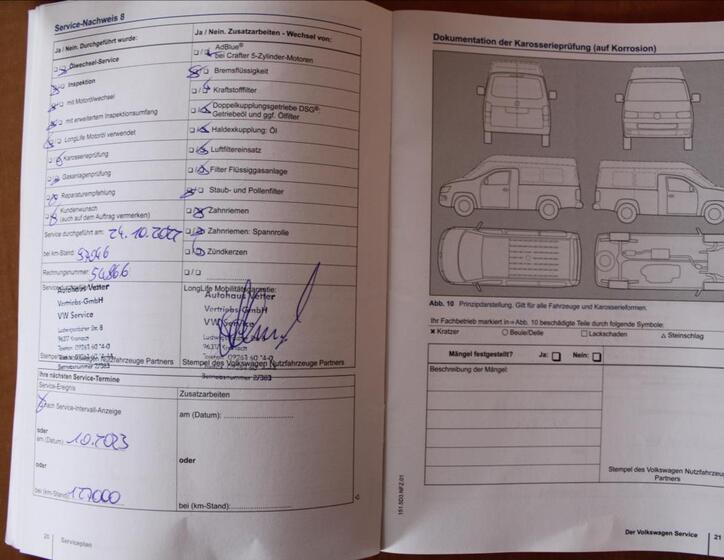 Service-Nachweis 8
Ja / Nein. Durchgeführt wurde:
Ölwechsel-Service
Inspektion
mit Motorölwechsel
mit erweitertem Inspektionsumfang
LongLife Motoröl verwendet
Karosserieprüfung
Gasanlagenprüfung
Reparaturempfehlung
Kundenwunsch
(auch auf dem Auftrag vermerken)
Service durchgeführt am: 24.10.2022
bei km-Stand:
Rechnungsnummer:
Autohaus Vetter
Vertriebs-GmbH
VW Service
Ludwigsstädter Str. 8
96317 Kronach
Ja / Nein. Zusatzarbeiten - Wechsel von:
AdBlue®
bei Crafter 5-Zylinder-Motoren
Bremsflüssigkeit
Kraftstofffilter
Doppelkupplungsgetriebe DSG®:
Getriebeöl und ggf. Ölfilter
Haldexkupplung: Öl
Luftfiltereinsatz
Filter Flüssiggasanlage
Staub- und Pollenfilter
Zahnriemen
Zahnriemen: Spannrolle
Zündkerzen
LongLife Mobilitätsgarantie:
Autohaus Vetter
Vertriebs-GmbH
VW Service
Stempel des Volkswagen Nutzfahrzeuge Partners
Ihre nächsten Service-Termine
Service-Ereignis
nach Service-Intervall-Anzeige
oder
am (Datum): 10.2023
oder
bei (km-Stand): 127000
Zusatzarbeiten
am (Datum):
oder
bei (km-Stand):
20 Serviceplan
Dokumentation der Karosserieprüfung (auf Korrosion)
Abb. 10 Prinzipdarstellung. Gilt für alle Fahrzeuge und Karosserieformen.
Ihr Fachbetrieb markiert in ⇒ Abb. 10 beschädigte Teile durch folgende Symbole:
✖ Kratzer ○ Beule/Delle □ Lackschaden △ Steinschlag
Mängel festgestellt? Ja: Nein:
Beschreibung der Mängel:
Stempel des Volkswagen Nutzfahrzeuge
Partners
151.5D3.NFZ.01
Der Volkswagen Service 21